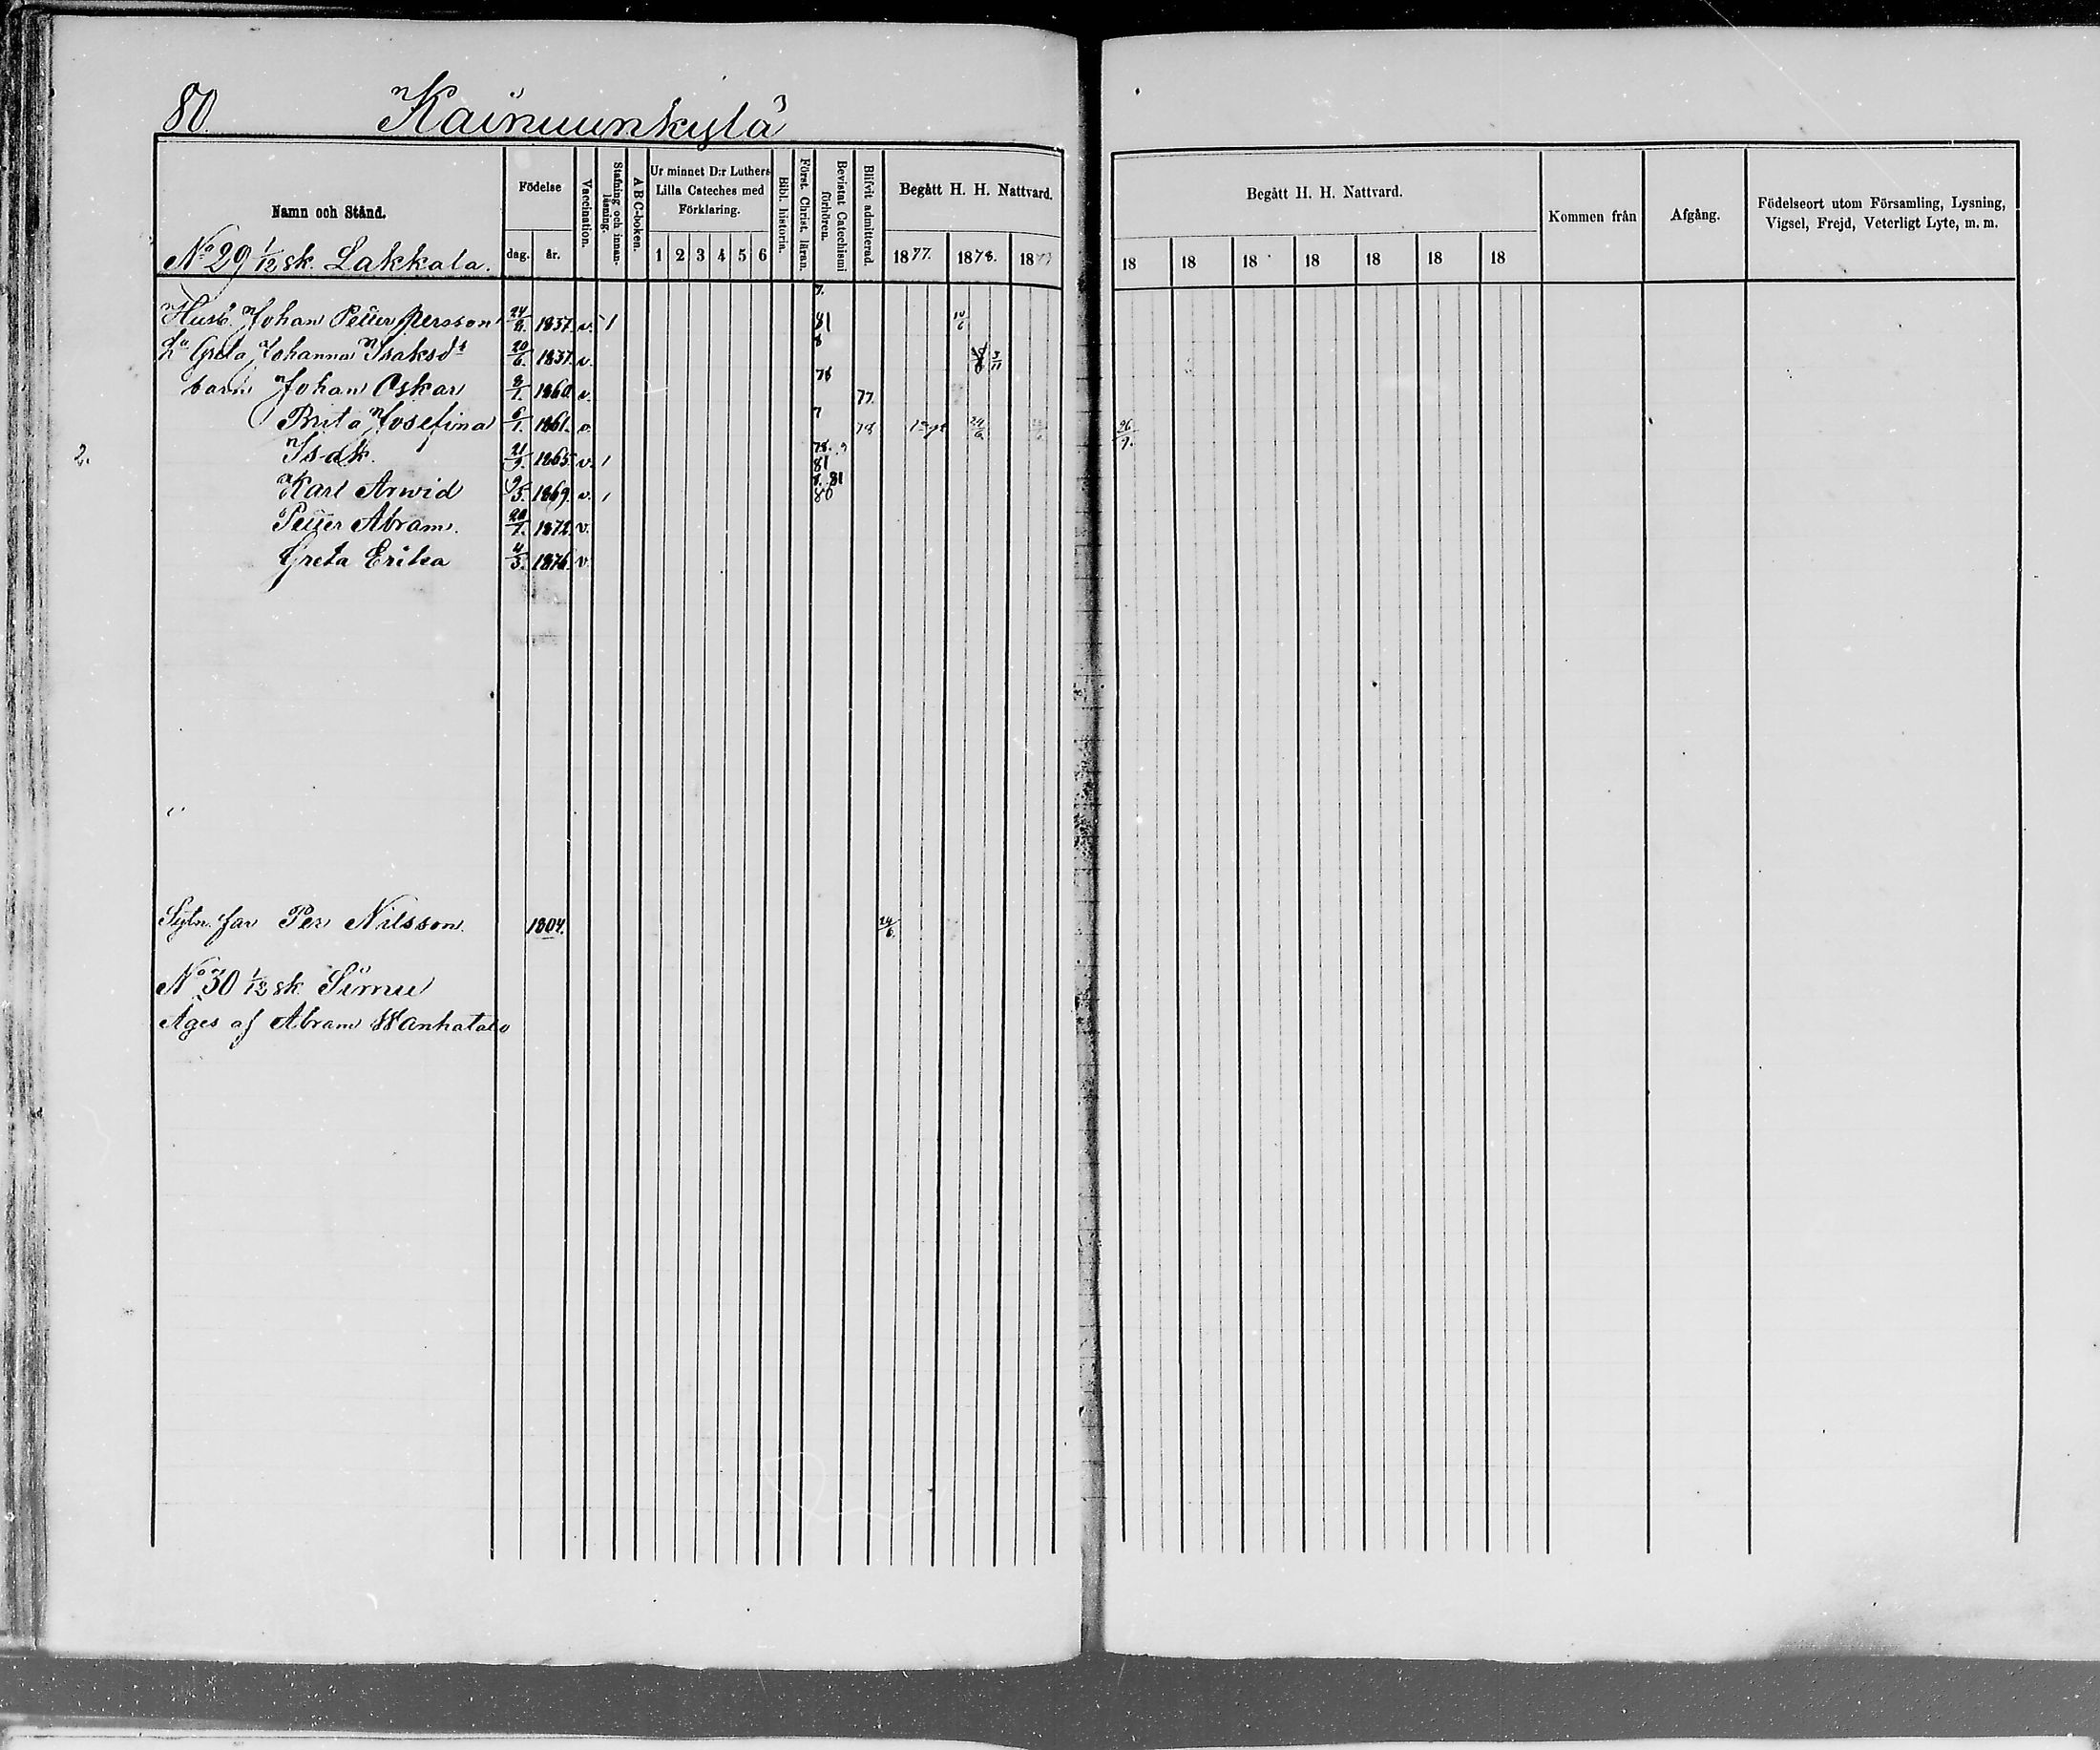 80. Kainuunkylä
Namn och Stånd.
Födelse
dag. år.
Vaccination.
Stafning och innanläsning.
A B C-boken.
Ur minnet D:r Luthers Lilla Cateches med Förklaring.
1 2 3 4 5 6
Bibl. historia.
Först. Christ. läran.
Bevistat Catechismi förhören.
Blifvit admitterad.
Begått H. H. Nattvard.
1877. 1878. 18
Begått H. H. Nattvard.
18 18 18 18 18 18 18
Kommen från
Afgång.
Födelseort utom Församling, Lysning, Vigsel, Frejd, Veterligt Lyte, m. m.
No 29 1/12 sk. Lakkala.
Husb. Johan Petter Persson 1837. v. 1 81
Greta Johanna Isaksdr 20/6. 1837. v. 8 3/11
barn Johan Oskar 1860. v. 78 77.
Brita Josefina 6/1. 1861. v. 7 78 24/6 26/7.
2. Isak. 21/9. 1865. v. 1 78. 81
Karl Arwid 9/5. 1869. v. 1 81 80
Petter Abram. 20/7. 1872. v.
Greta Erika 4/3. 1876. v.
Sytn. far Per Nilsson. 1804. 24/6.
No 30 1/12 sk. Simu
Äges af Abram Wanhatalo